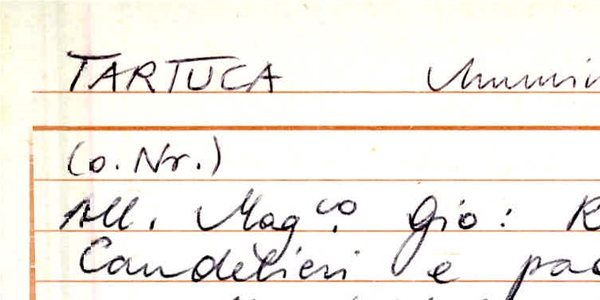 TARTUCA
(o. Nr.)
All. Mag.co Gio: R
Candelieri e pac